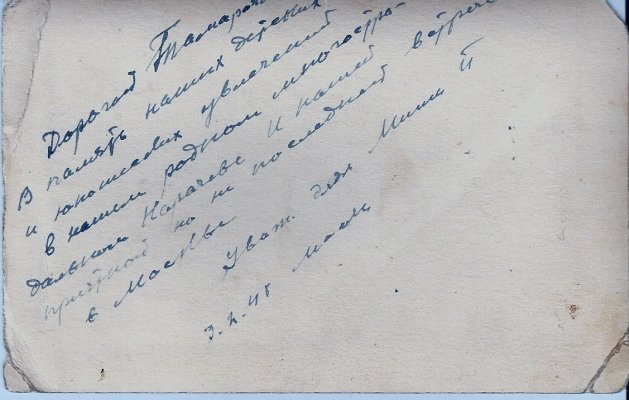 Дорогой Тамароч
В память наших детских
и юношеских увлечений
в нашем родном многостра-
дальном Карачеве и нашей встрече
приятной но не последней
в Москве
Уваж. дядя Миша П
3.X.45